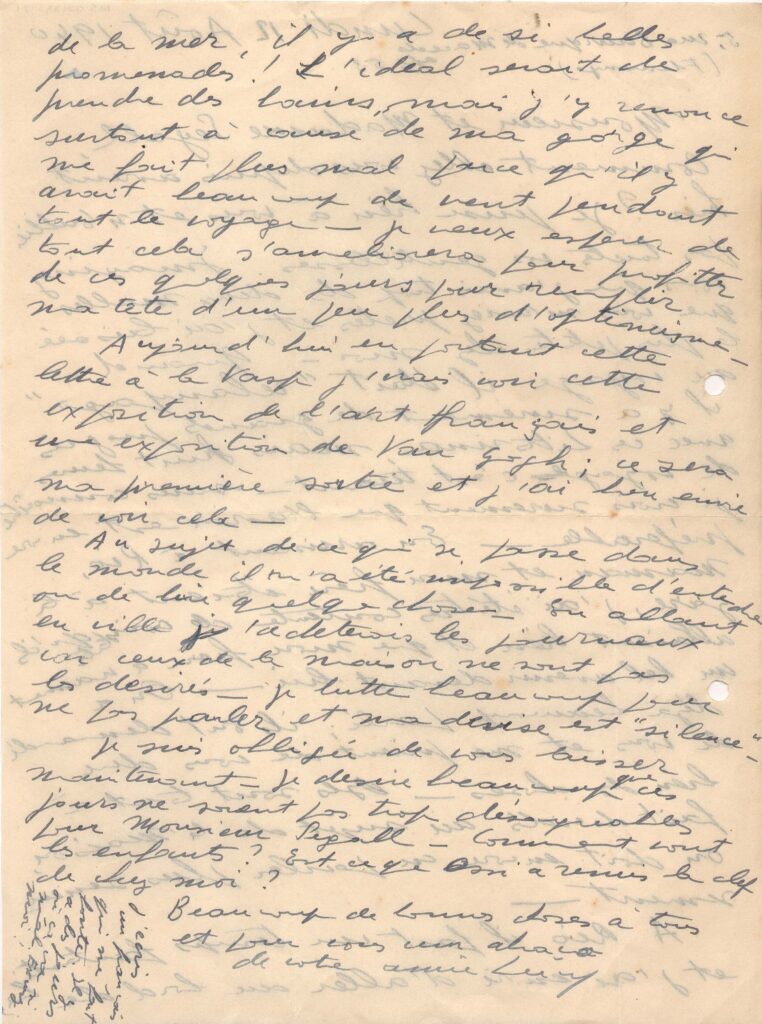 de la mer, il y a de si belles
promenades! L'idéal serait de
prendre des bains, mais j'y renonce
surtout à cause de ma gorge qui
me fait plus mal parce qu'il y
avait beaucoup de vent pendant
tout le voyage — je veux espérer que
tout cela s'améliorera pour profiter
de ces quelques jours pour remplir
ma tête d'un peu plus d'optimisme —
Aujourd'hui en portant cette
lettre à la Vasp j'irais voir cette
exposition de l'art français et
une exposition de Van Gogh; ce sera
ma première sortie et j'ai bien envie
de voir cela —
Au sujet de ce qui se passe dans
le monde il m'a été impossible d'entendre
ou de lire quelque chose — En allant
en ville j'achèterais les journaux
car ceux de la maison ne sont pas
les désirés — je lutte beaucoup pour
ne pas parler et ma devise est "silence" —
Je suis obligée de vous laisser
maintenant — je désire beaucoup que ces
jours ne soient pas trop désagréables
pour Monsieur Segall — Comment vont
les enfants? Est ce que a remis la clef
de chez moi?
Beaucoup de bonnes choses à tous
et pour vous un abraço
de votre amie Lucy
J'écris
un français
qui me fait
honte; il
y a des jours
où ça va
mal